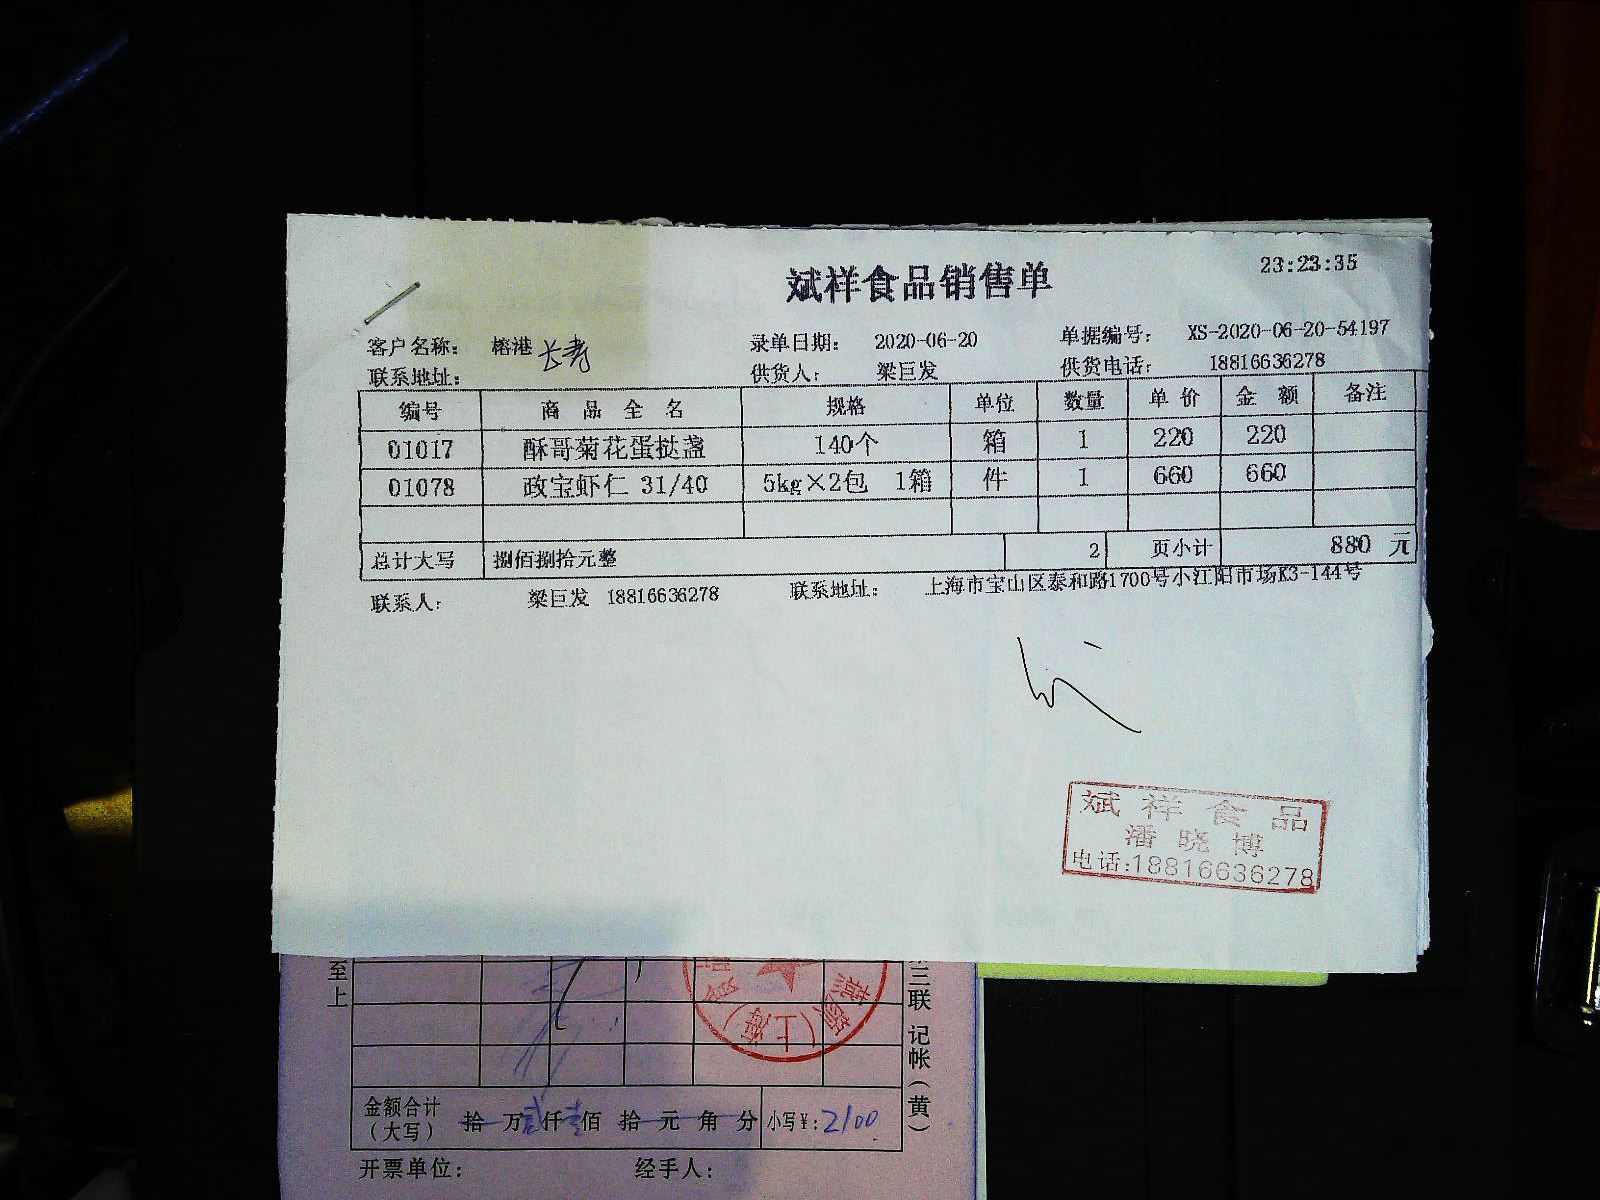 斌祥食品销售单
23:23:35
客户名称: 榕港 长寿 录单日期: 2020-06-20 单据编号: XS-2020-06-20-54197
联系地址: 供货人: 梁巨发 供货电话: 18816636278
编号 商品全名 规格 单位 数量 单价 金额 备注
01017 酥哥菊花蛋挞盏 140个 箱 1 220 220
01078 政宝虾仁 31/40 5kg×2包 1箱 件 1 660 660
总计大写 捌佰捌拾元整 2 页小计 880 元
联系人: 梁巨发 18816636278 联系地址: 上海市宝山区泰和路1700号小江阳市场K3-144号
斌祥食品
潘晓博
电话:18816636278
至上
三联 记帐(黄)
(上海)
金额合计(大写) 拾 万 贰 仟 壹 佰 拾 元 角 分 小写¥: 2100
开票单位: 经手人: